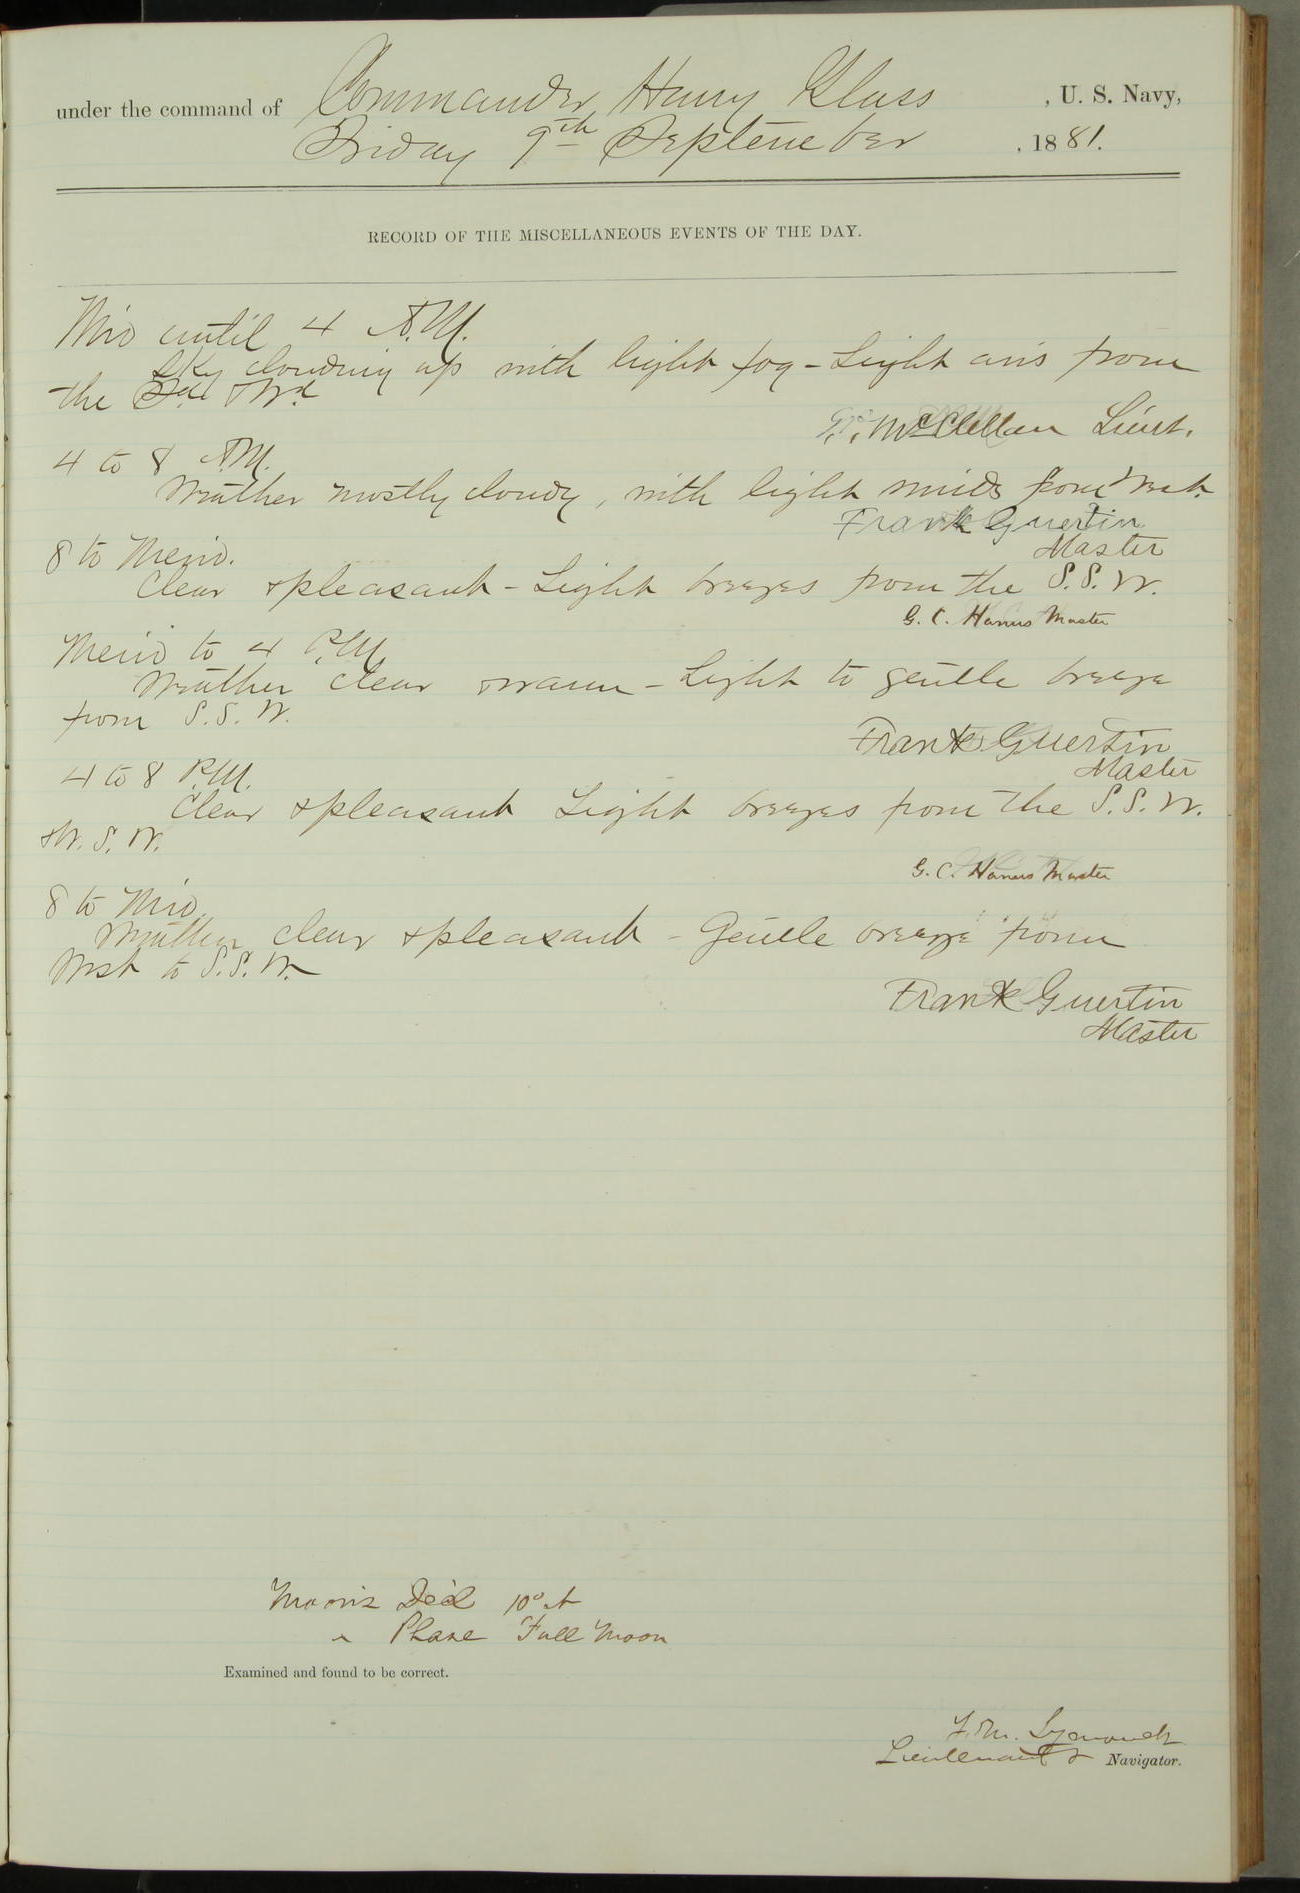 under the command of Commander Henry Glass, U. S. Navy,
Friday 9th September, 1881.
RECORD OF THE MISCELLANEOUS EVENTS OF THE DAY.
Mid until 4 A.M.
Sky clouding up with light fog - Light airs from
the Sd & Wd
McClellan Lieut.
4 to 8 A.M.
Weather mostly cloudy, with light winds from West.
Frank Guertin
Master
8 to Merid.
Clear & pleasant - Light breezes from the S.S.W.
G. C. Hanus Master
Merid to 4 P.M.
Weather clear & warm - Light to gentle breeze
from S.S.W.
Frank Guertin
Master
4 to 8 P.M.
Clear & pleasant Light breezes from the S.S.W.
& W.S.W.
G. C. Hanus Master
8 to Mid.
Weather clear & pleasant - Gentle breeze from
West to S.S.W.
Frank Guertin
Master
Moon's Dec'l 10°
" Phase Full Moon
Examined and found to be correct.
F. M. Symonds
Lieutenant & Navigator.